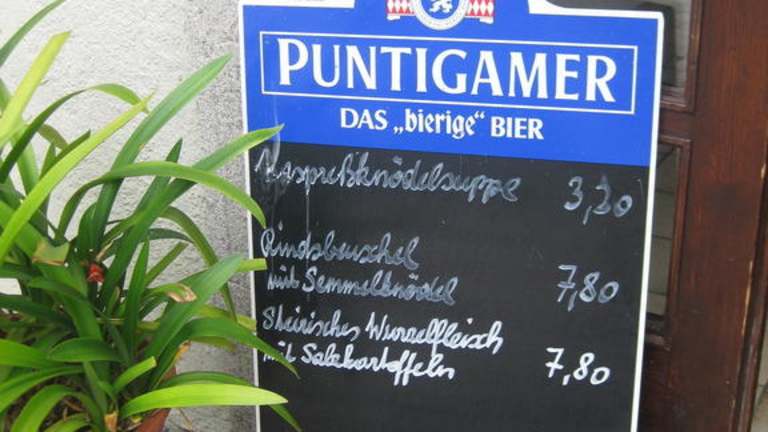 PUNTIGAMER
DAS „bierige“ BIER
Kaspreßknödelsuppe 3,20
Rindsbeuschel
mit Semmelknödel 7,80
Steirisches Wurzelfleisch
mit Salzkartoffeln 7,80